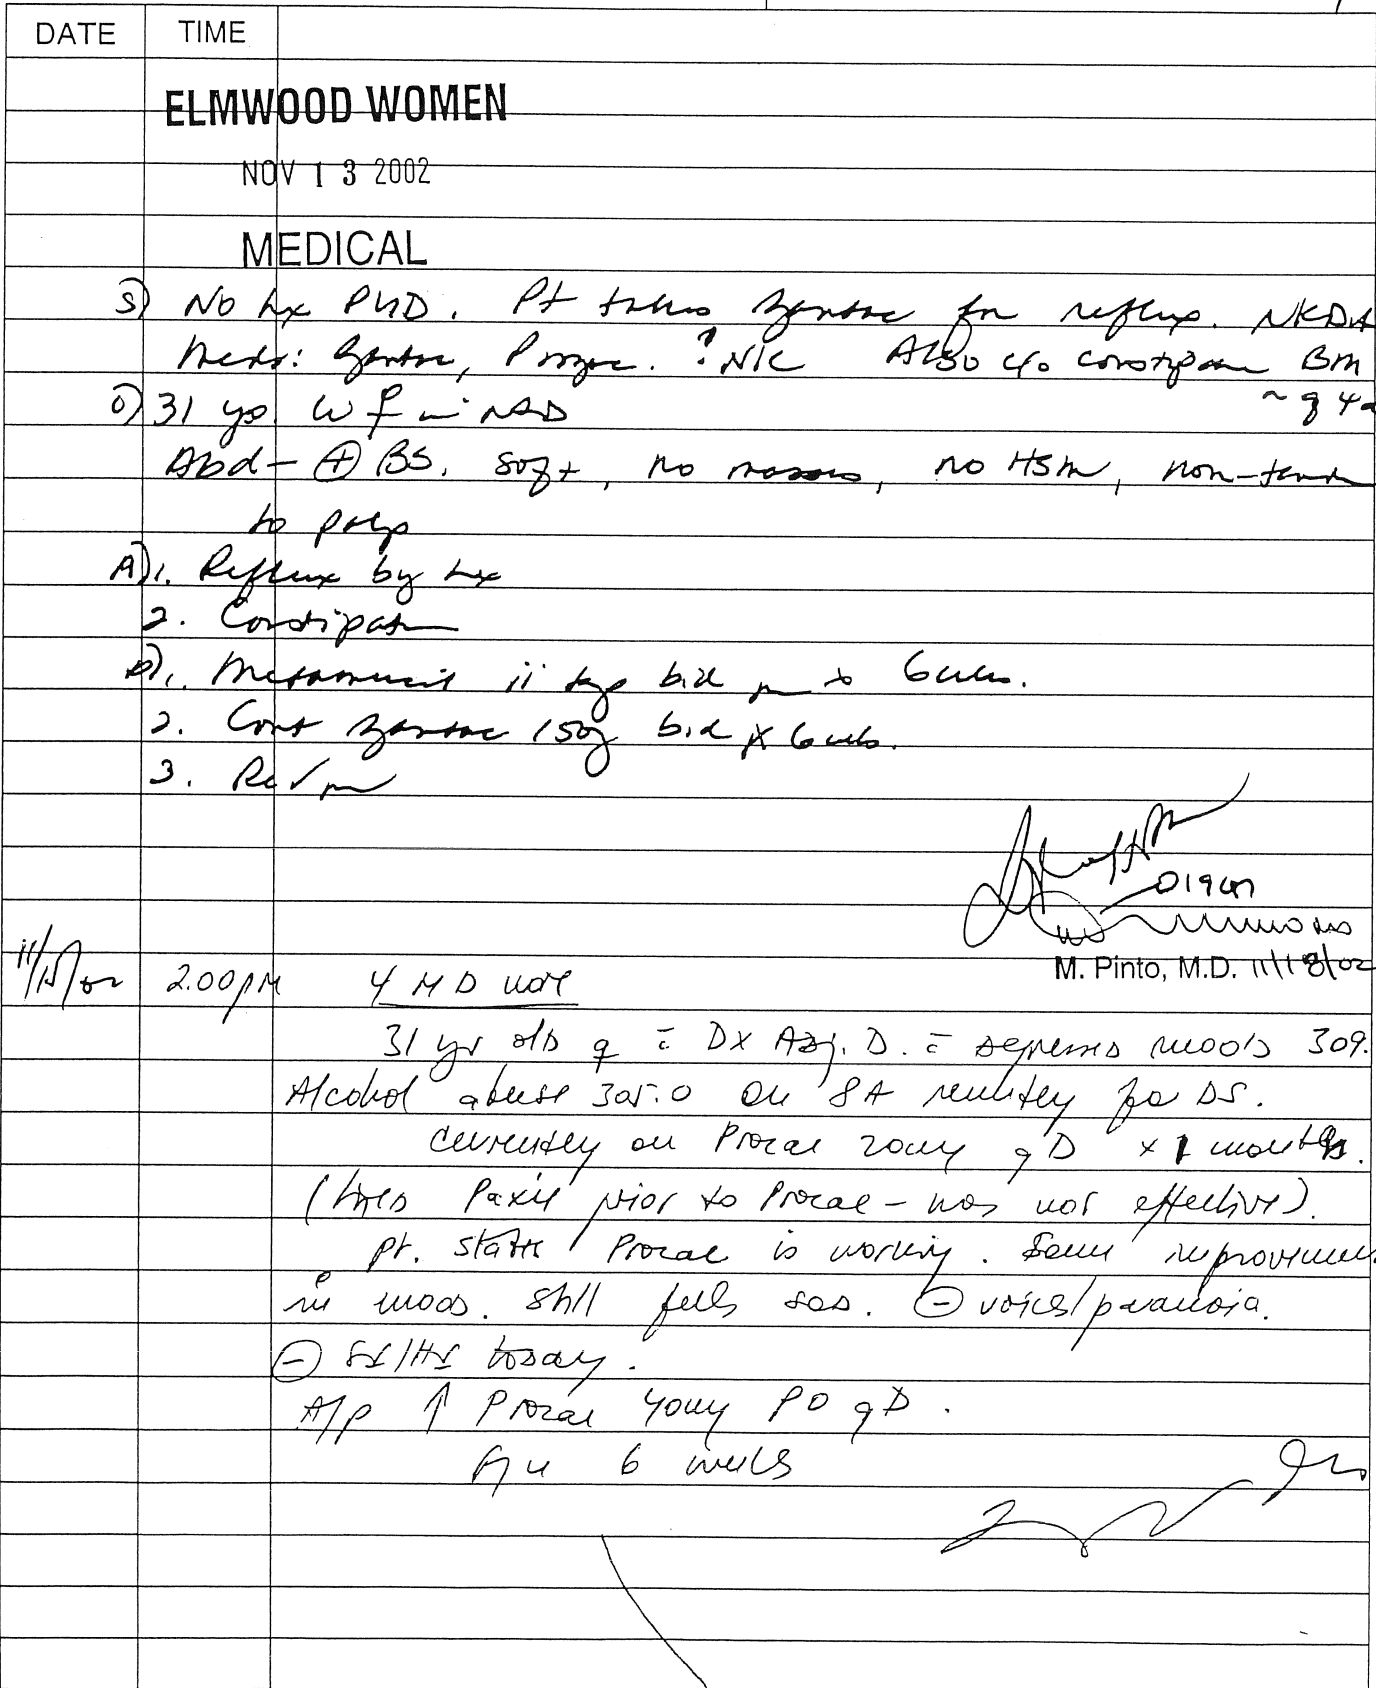 DATE TIME
ELMWOOD WOMEN
NOV 13 2002
MEDICAL
S) No Hx PUD. Pt takes Zantac for reflux. NKDA
Meds: Zantac, Prozac. Also c/o constipation BM
O) 31 yo W♀ in NAD ~ q 4d
Abd - ⊕ BS. soft, no masses, no HSM, non-tender
to palp
A) 1. Reflux by Hx
2. Constipation
P) 1. Metamucil ii bid x 6 wks.
2. Cont Zantac 150g bid x 6 wks.
3. Re✓ prn
M. Pinto, M.D. 11/18/02
11/15/02 2.00pm ψ MD note
31 yr old ♀ c̄ DX Adj. D. c̄ depressed mood 309.
Alcohol abuse 305.0 on
currently on Prozac 20mg qD x 1 months.
(tried Paxil prior to Prozac - was not effective).
pt. states Prozac is working. Some improvement
in mood. Still feels sad. ⊖ voices/paranoia.
⊖ SI/HI today.
A/P ↑ Prozac 40mg PO qD.
F/u 6 weeks